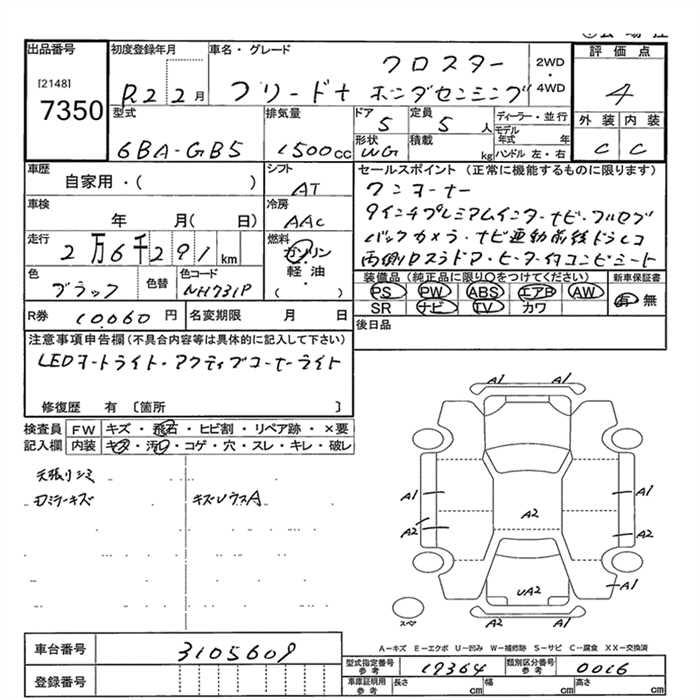 出品番号
[2148]
7350
初度登録年月
R2 2月
車名・グレード
クロスター
フリード+ ホンダセンシング
2WD
・
4WD
評価点
4
外装 内装
C C
型式
6BA-GB5
排気量
1500cc
ドア
5
定員
5人
形状
WG
積載
kg
ディーラー・並行
モデル年式 年
ハンドル 左・右
車歴
自家用・( )
シフト
AT
車検
年 月( 日)
冷房
AAC
走行
2万6千291km
燃料
ガソリン
軽油
( )
色
ブラック
色替
色コード
NH731P
R券 10,060円
名変期限 月 日
セールスポイント (正常に機能するものに限ります)
ワンオーナー
9インチプレミアムインターナビ・フルセグ
バックカメラ・ナビ連動前後ドラレコ
両側Pスラドア・ヒーター付コンビシート
装備品 (純正品に限り○をつけてください)
PS PW ABS エアB AW
SR ナビ TV カワ
新車保証書
有 無
後日品
注意事項申告欄 (不具合内容等は具体的に記入して下さい)
LEDオートライト・アクティブコーナーライト
修復歴 有 〔箇所 〕
検査員記入欄
FW キズ・飛石・ヒビ割・リペア跡・×要
内装 キズ・汚レ・コゲ・穴・スレ・キレ・破レ
天張りシミ
ロミラーキズ
キズUウスA
A1 A1
A1 A1
A2
A2 A2
A1
UA2
A2 A2
スペア
A-キズ E-エクボ U-凹み W-補修跡 S-サビ C-腐食 XX-交換済
車台番号 3105609
登録番号
型式指定番号 参考 19364
類別区分番号 参考 0016
車庫証明用 参考 長さ cm 幅 cm 高さ cm